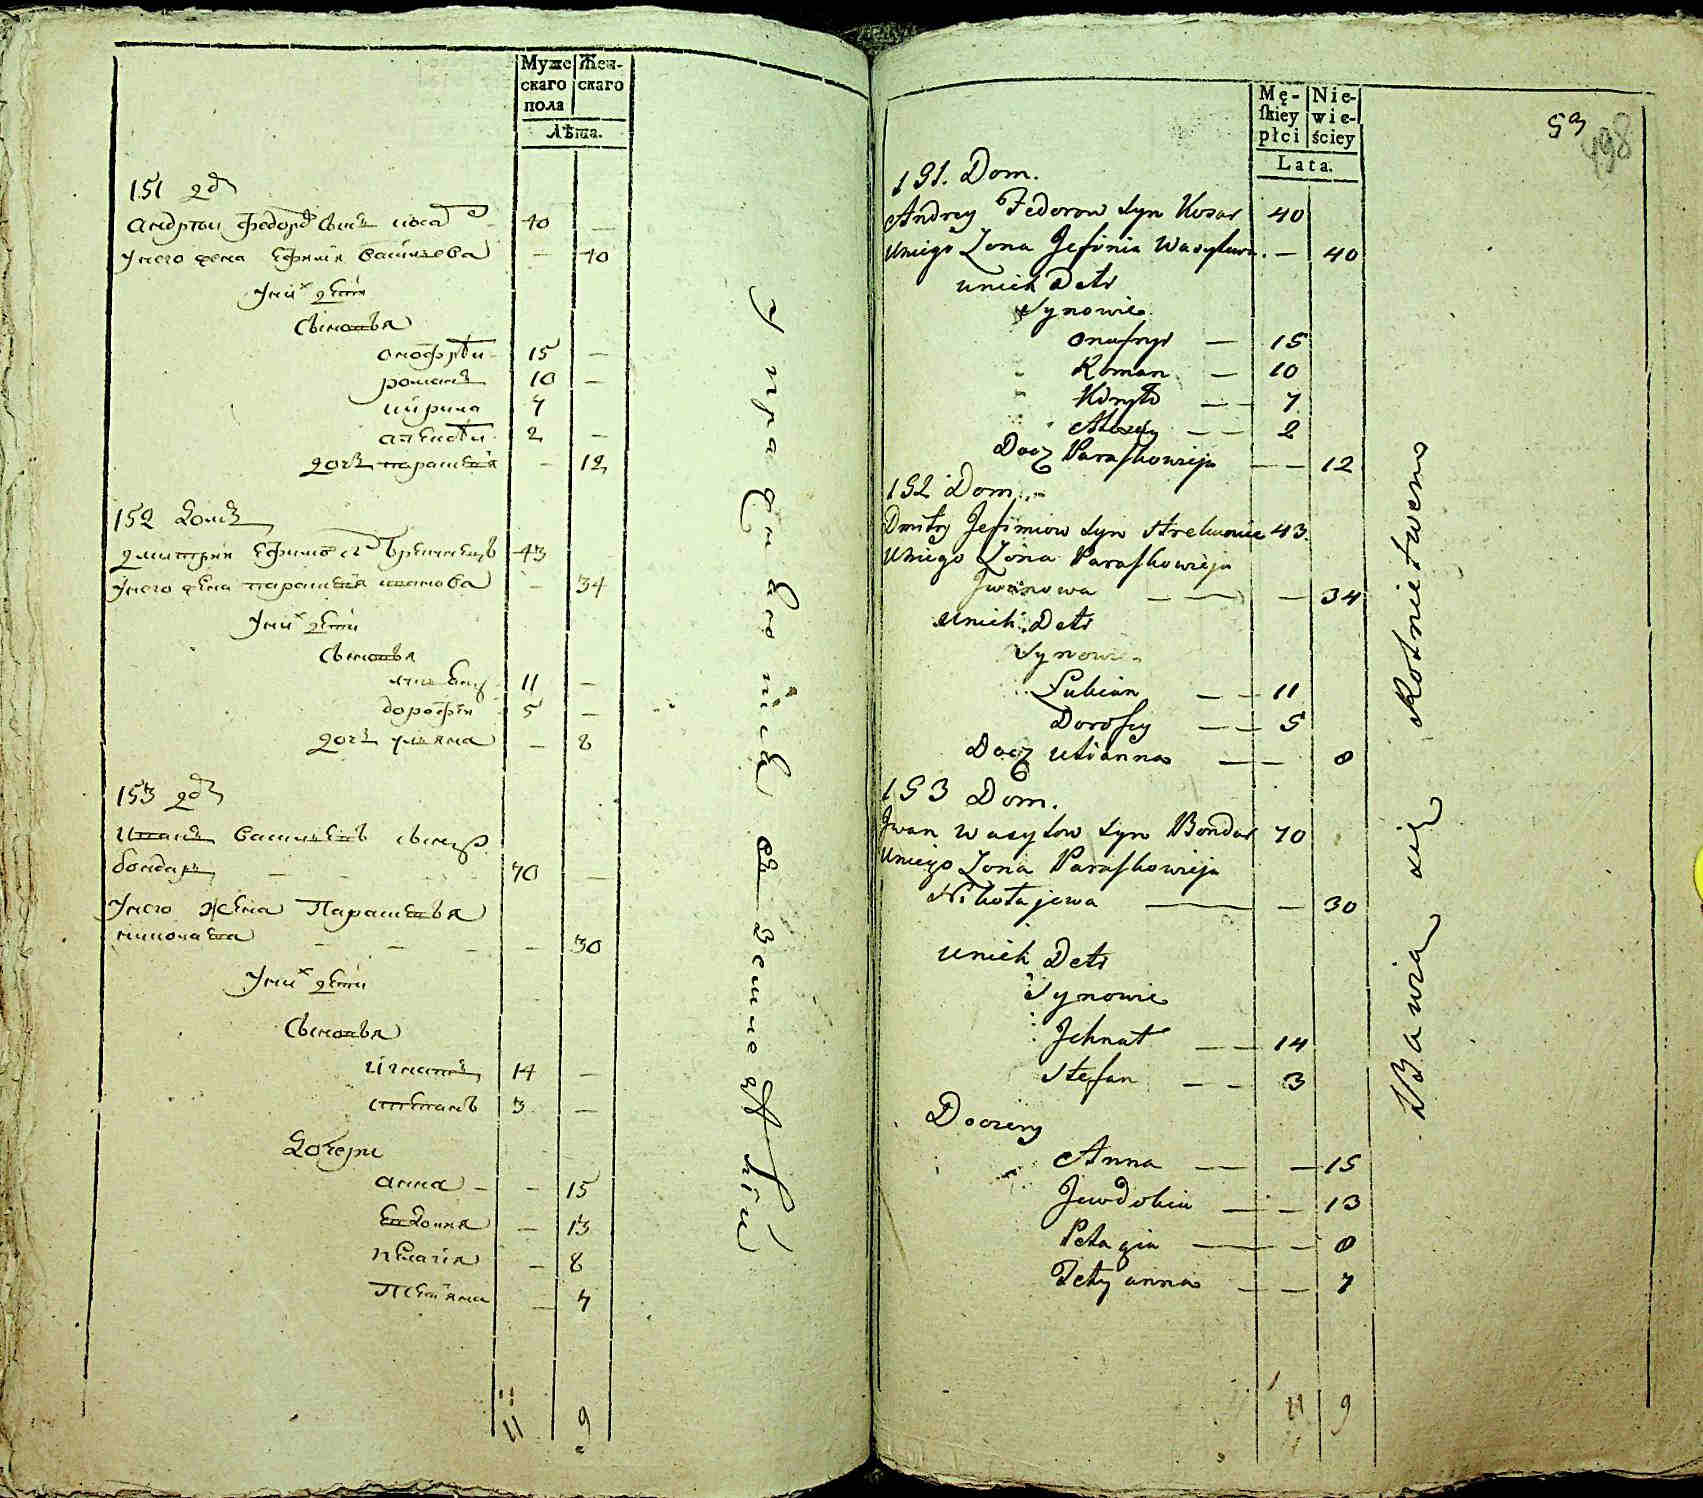 Муже Жен-
скаго скаго
пола
Лѣта.
151 дᵒ
Андрѣи Федоровъ сынъ
40 —
У него жена Ефимія Василева — 40
У них дети
Сыновья
Онофрѣи 15 —
Романъ 10 —
Кирила 7
Алексѣи 2 —
дочь Парасковія — 12
152 домъ
Дмитрий Ефимовъ 43
У него жена Парасковія Иванова — 34
У них дети
Сыновья
11 —
Дорофѣи 5 —
дочь Уляна — 8
153 дᵒ
Иванъ Васильевъ сынъ
бондарь 70 —
У него жена Парасковья
Николаева — 30
У них дети
Сыновья
Игнатъ 14 —
Степанъ 3 —
Дочери
Анна — 15
Евдокия — 13
Пелагія — 8
Тетіяна — 7
11 9
Упражняются въ земледѣліи
Mę- Nie-
skiey wie-
płci ściey
Lata.
53
198
151. Dom.
Andrey Fedorow syn Kosar 40
Uniego Zona Jefimia Wasylewa — 40
unich Deti
Synowie
Onufryi — 15
Roman — 10
Kiryło — 7
Alexey — 2
Docz Paraskowieja — 12
152 Dom
Dmitry Jefimiow syn 43
Uniego Zona Paraskowieja
Jwanowa — 34
Unich Deti
Synowie
Lukian — 11
Dorofiey — 5
Docz Ulianna — 8
153 Dom.
Jwan Wasylow syn Bondar 70
Uniego Zona Paraskowieja
Nikołajewa — 30
Unich Deti
Synowie
Jehnat — 14
Stefan — 3
Doczery
Anna — 15
Jewdokia — 13
Pełagia — 8
Tetyanna — 7
11 9
Bawią się Rolnictwem